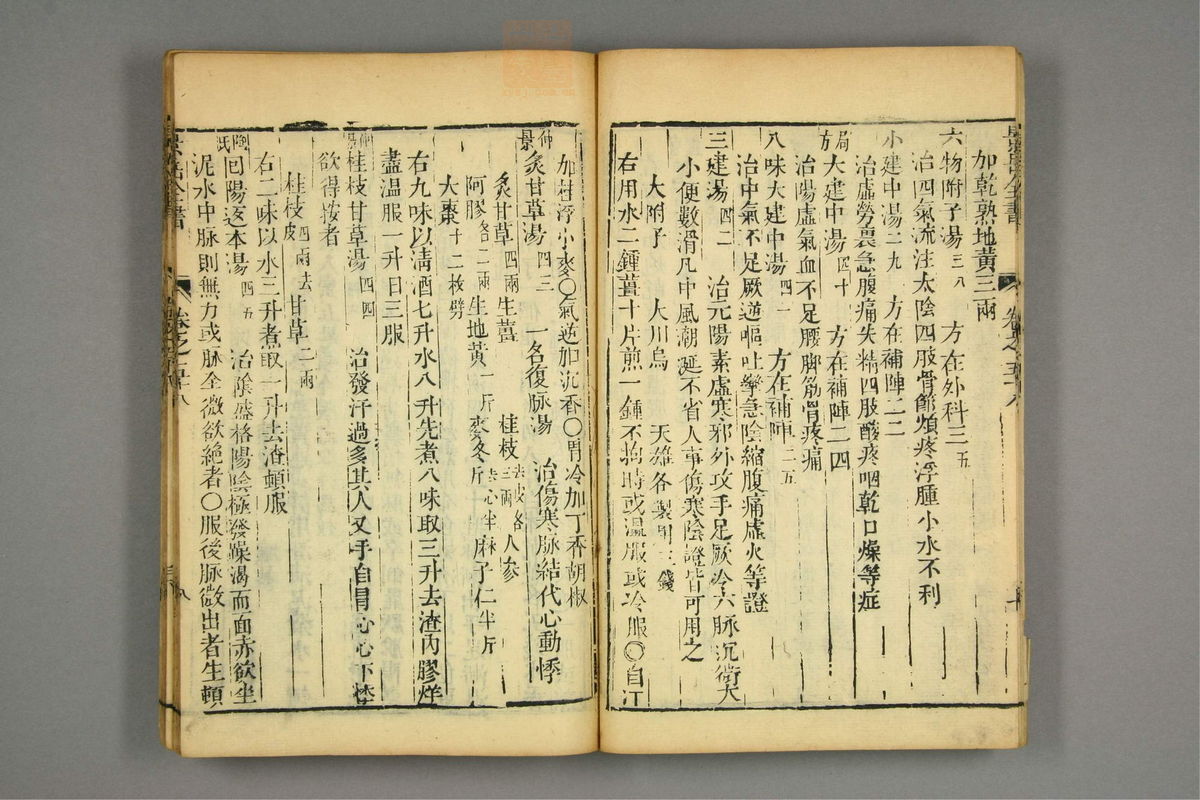 加乾熟地黃三兩
六物附子湯 三八 方在外科三五
治四氣流注太陰四肢骨節煩疼浮腫小水不利
小建中湯 二九 方在補陣二二
治虛勞裏急腹痛失精四肢酸疼咽乾口燥等症
局方 大建中湯 四十 方在補陣二四
治陽虛氣血不足腰脚筋骨疼痛
八味大建中湯 四一 方在補陣二五
治中氣不足厥逆嘔吐攣急陰縮腹痛虛火等證
三建湯 四二 治元陽素虛寒邪外攻手足厥冷六脉沉微大
小便數滑凡中風潮涎不省人事傷寒陰證皆可用之
大附子 大川烏 天雄各製用三錢
右用水二鍾薑十片煎一鍾不拘時或溫服或冷服〇自汗
加桂浮小麥〇氣逆加沉香〇胃冷加丁香胡椒
仲景 炙甘草湯 四三 一名復脉湯 治傷寒脉結代心動悸
炙甘草 四兩 生薑 桂枝 去皮各三兩 人參
阿膠 各二兩 生地黃 一斤 麥冬 去心半斤 麻子仁 半斤
大棗 十二枚劈
右九味以清酒七升水八升先煮八味取三升去渣內膠烊
盡溫服一升日三服
仲景 桂枝甘草湯 四四 治發汗過多其人叉手自冒心心下悸
欲得按者
桂枝 四兩去皮 甘草 二兩
右二味以水三升煮取一升去渣頓服
陶氏 回陽返本湯 四五 治陰盛格陽陰極發躁渴而面赤欲坐
泥水中脉則無力或脉全微欲絕者〇服後脉微出者生頓